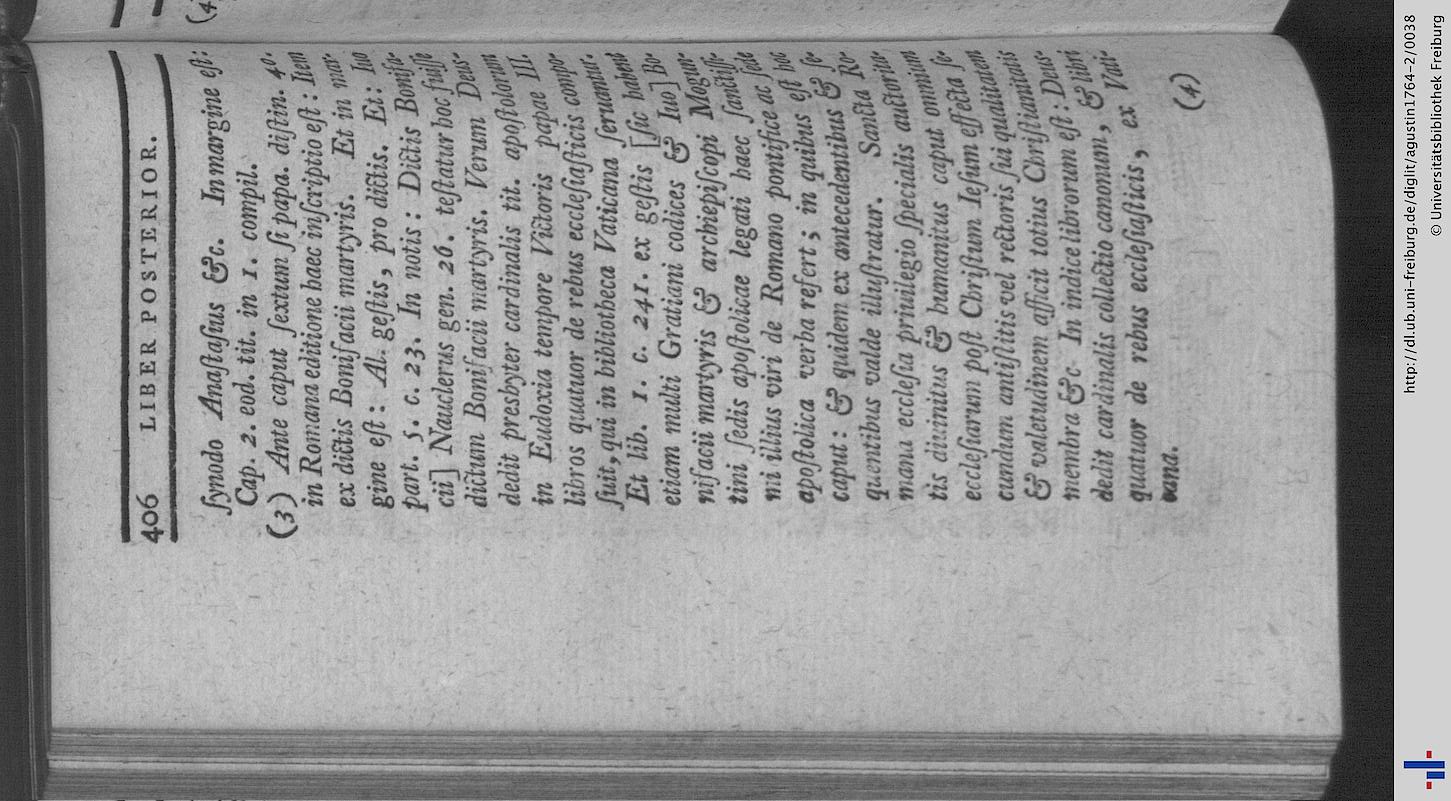 406 LIBER POSTERIOR.
ſynodo Anaſtaſeus &c. In margine eſt:
Cap. 2. eod. tit. in 1. compil.
(3) Ante caput ſextum ſi papa. diſtin. 40.
in Romana editione haec inſcriptio eſt: Item
ex dictis Bonifacii martyris. Et in mar-
gine eſt: Al. geſtis, pro dictis. Et: Iuo
part. 5. c. 23. In notis: Dictis Bonifa-
cii] Nauclerus gen. 26. teſtatur hoc fuiſſe
dictum Bonifacii martyris. Verum Deus-
dedit presbyter cardinalis tit. apoſtolorum
in Eudoxia tempore Victoris papae III.
libros quatuor de rebus eccleſiaſticis compo-
ſuit, qui in bibliotheca Vaticana ſeruantur.
Et lib. 1. c. 241. ex geſtis [ſic habent
etiam multi Gratiani codices & Iuo] Bo-
nifacii martyris & archiepiſcopi Mogun-
tini ſedis apoſtolicae legati haec ſanctiſſi-
mi illius viri de Romano pontifice ac ſede
apoſtolica verba refert; in quibus eſt hoc
caput: & quidem ex antecedentibus & ſe-
quentibus valde illuſtratur. Sancta Ro-
mana eccleſia priuilegio ſpecialis auctorita-
tis diuinitus & humanitus caput omnium
eccleſiarum poſt Chriſtum Ieſum effecta ſe-
cundum antiſtitis vel rectoris ſui qualitatem
& valetudinem afficit totius Chriſtianitatis
membra &c In indice librorum eſt: Deus-
dedit cardinalis collectio canonum, & libri
quatuor de rebus eccleſiaſticis, ex Vati-
cana.
(4)
(4
http://dl.ub.uni-freiburg.de/diglit/agustin1764-2/0038
© Universitätsbibliothek Freiburg